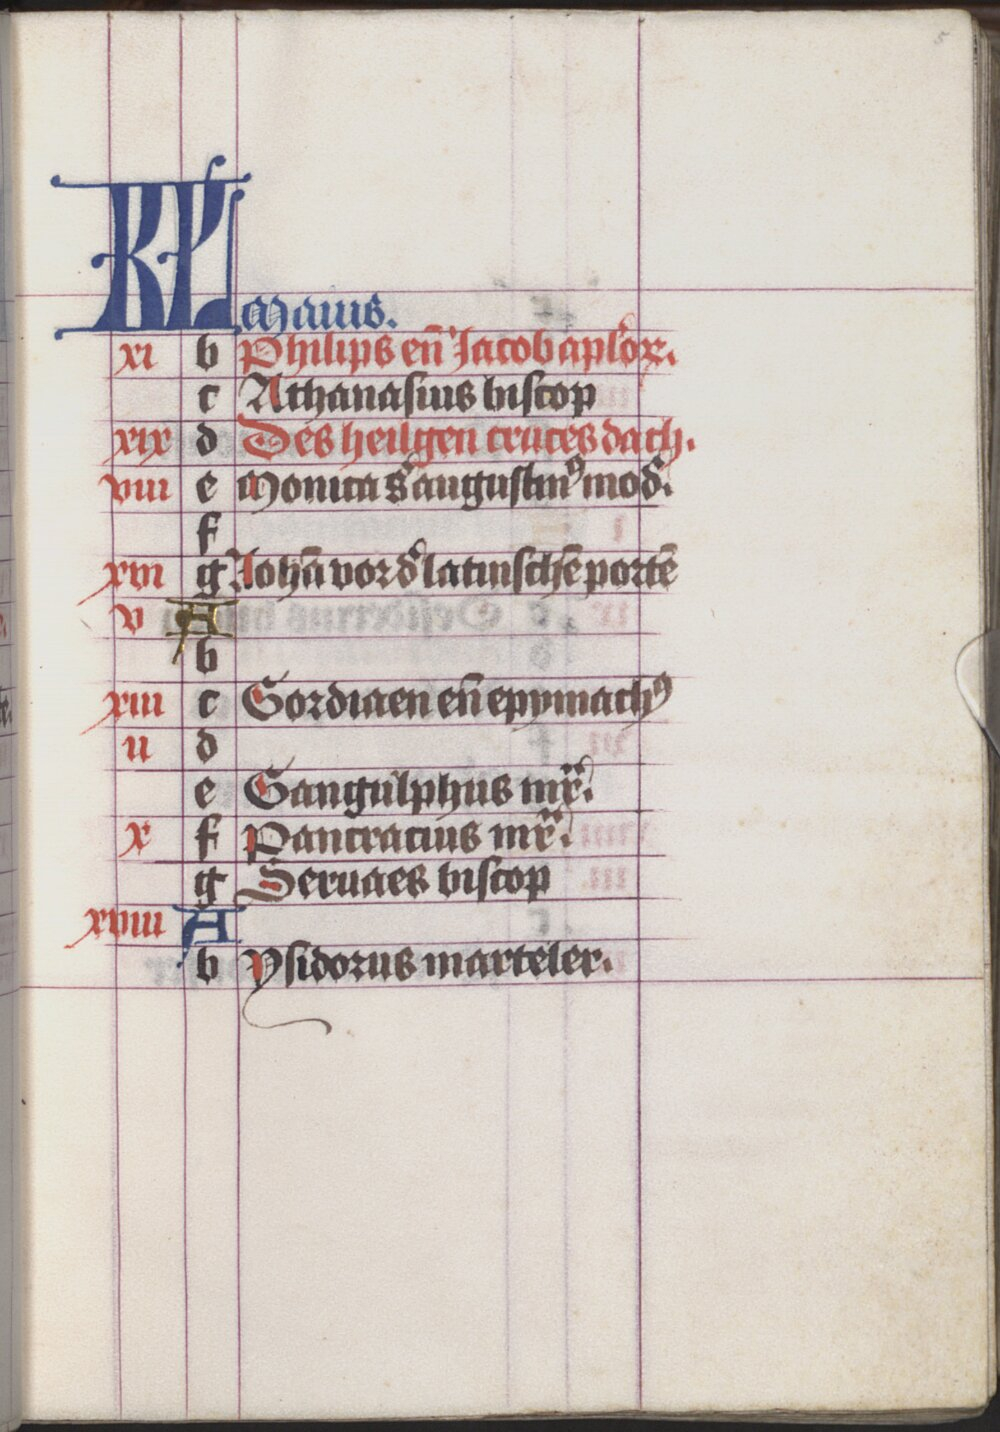 KL Maius.
xi b Philips en̄ Jacob aplōꝝ.
c Athanasius biscop
xix d Des heilgen cruces dach.
viii e Monica s̄ augustinꝰ mod̄.
f
xvi g Johā vor d̄ latinschē portē
v A
b
xiii c Gordiaen en̄ epymachꝰ
ii d
e Gangulphus mr̄.
x f Pancracius mr̄.
g Seruaes biscop
xviii A
b Ysidorus marteler.